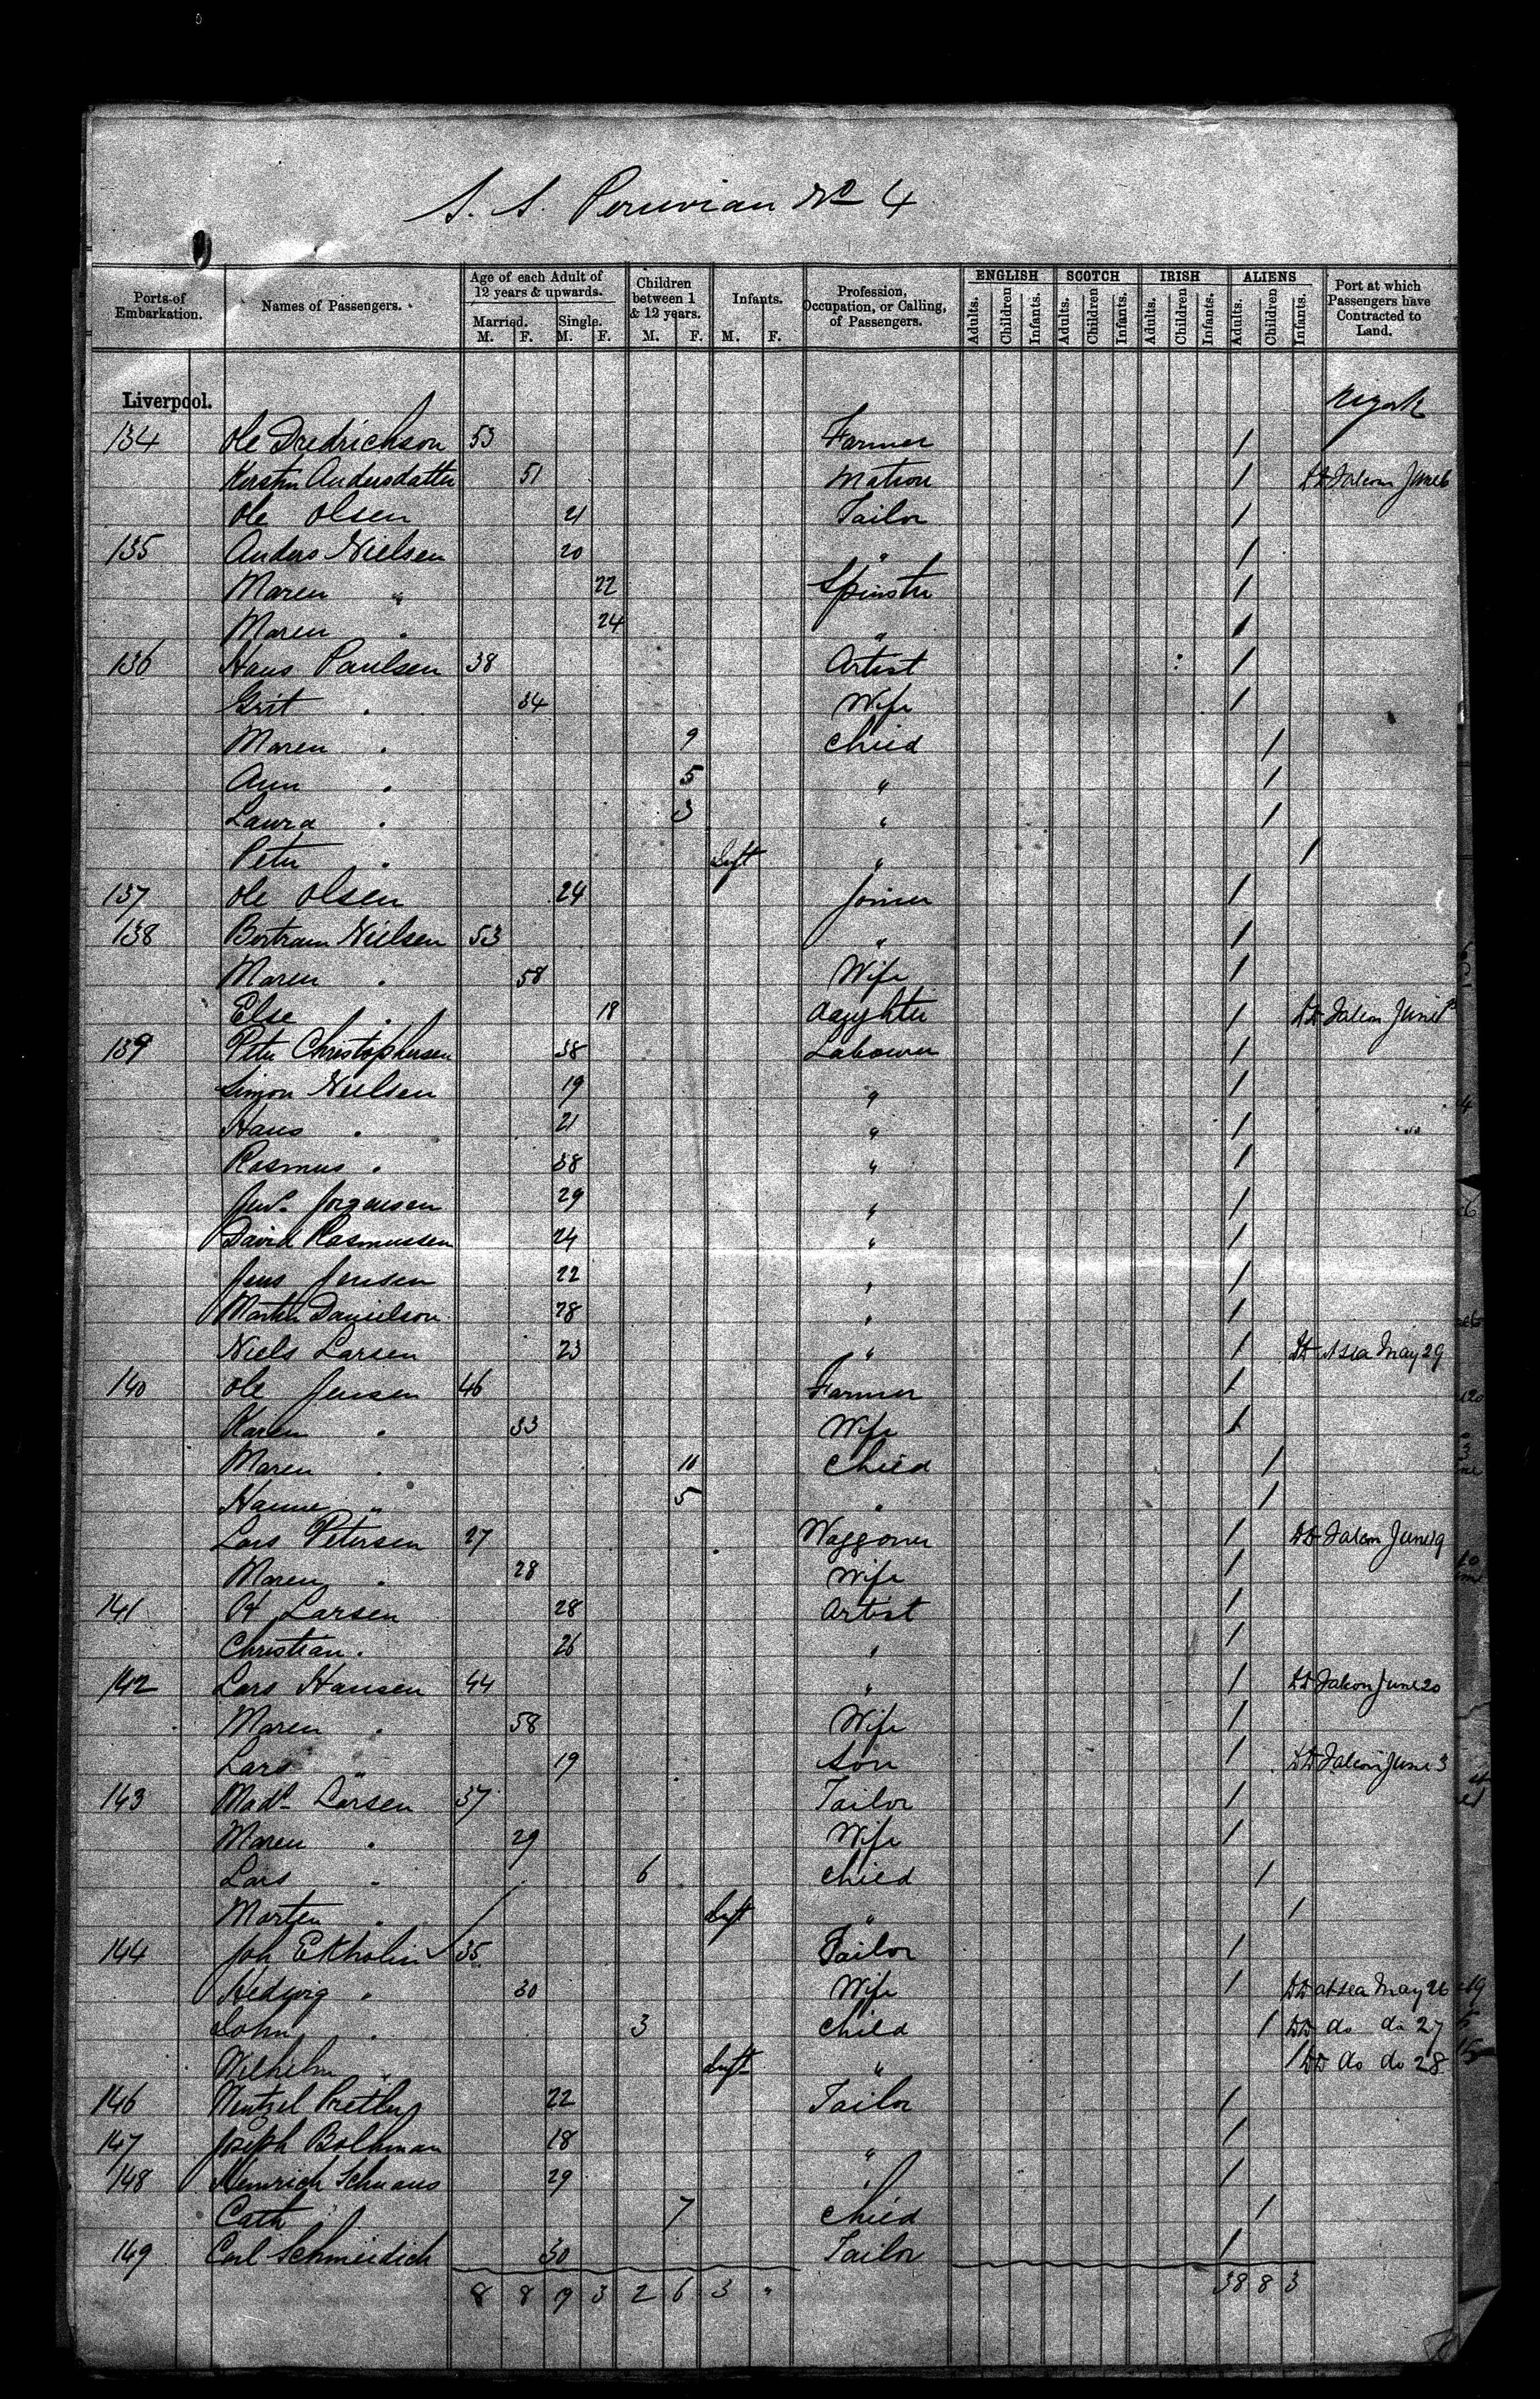 S. S. Peruvian No 4
Ports of Embarkation. Names of Passengers. Age of each Adult of 12 years & upwards. Children between 1 & 12 years. Infants. Profession, Occupation, or Calling, of Passengers. ENGLISH SCOTCH IRISH ALIENS Port at which Passengers have Contracted to Land.
Married. Single.
M. F. M. F. M. F. M. F. Adults. Children Infants. Adults. Children Infants. Adults. Children Infants. Adults. Children Infants.
Liverpool. NYork
134 Ole Diedrichson 53 Farmer 1
Kerstin Andersdatter 51 Matron 1 DD Falcon June 6
Ole Olsen 21 Tailor 1
135 Anders Nielsen 20 " 1
Maren " 22 Spinster 1
Maren " 24 " 1
136 Hans Paulsen 38 Artist 1
Grit " 34 Wife 1
Maren " 9 Child 1
Ann " 5 " 1
Laura " 3 " 1
Peter " Inft " 1
137 Ole Olsen 24 Joiner 1
138 Bertram Nielsen 53 " 1
Maren " 58 Wife 1
Else " 18 Daughter 1 DD Falcon June
139 Peter Christophersen 38 Labourer 1
Simon Nielsen 19 " 1
Hans " 21 " 1
Rasmus " 38 " 1
Jorgensen 29 " 1
David Rasmussen 24 " 1
Jens Jensen 22 " 1
Martin Danielson 28 " 1
Niels Larsen 23 " 1 DD At sea May 29
140 Ole Jensen 46 Farmer 1
Karen " 33 Wife 1
Maren " 11 Child 1
Hanne " 5 " 1
Lars Petersen 27 Waggoner 1 DD Falcon June 19
Maren " 28 Wife 1
141 Larsen 28 Artist 1
Christian " 26 " 1
142 Lars Hansen 44 " 1 DD Falcon June 20
Maren " 58 Wife 1
Lars " 19 Son 1 DD Falcon June 3
143 Mads Larsen 37 Tailor 1
Maren " 29 Wife 1
Lars " 6 Child 1
Morten " Inft " 1
144 Joh Ekholm 35 Tailor 1
Hedwig " 30 Wife 1 DD at sea May 26
John " 3 Child 1 DD do do 27
Wilhelm " Inft " 1 DD do do 28
146 Wentzel 22 Tailor 1
147 Joseph Bolhman 18 " 1
148 Heinrich Schnaus 29 " 1
Cath " 7 Child 1
149 Carl Schmeidich 30 Tailor 1
8 8 19 3 2 6 3 " 38 8 3